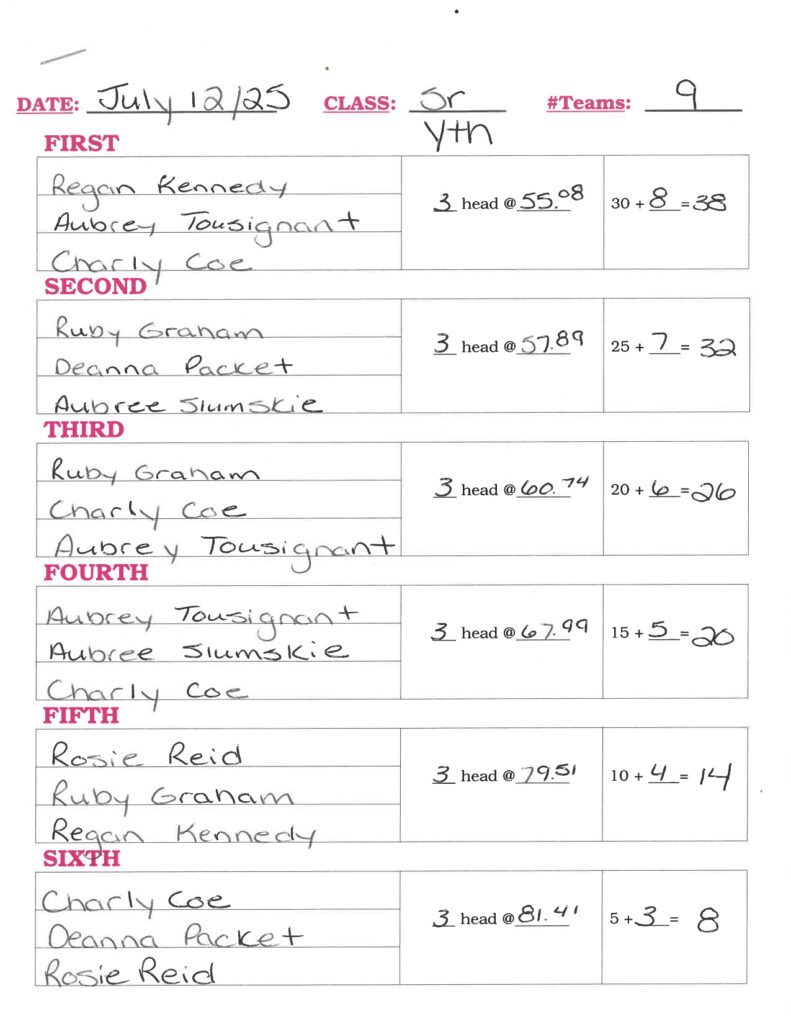 DATE: July 12/25 CLASS: Sr Yth #Teams: 9
FIRST
Regan Kennedy
Aubrey Tousignant
Charly Coe
3 head @ 55.08
30 + 8 = 38
SECOND
Ruby Graham
Deanna Packet
Aubree Slumskie
3 head @ 57.89
25 + 7 = 32
THIRD
Ruby Graham
Charly Coe
Aubrey Tousignant
3 head @ 60.74
20 + 6 = 26
FOURTH
Aubrey Tousignant
Aubree Slumskie
Charly Coe
3 head @ 67.99
15 + 5 = 20
FIFTH
Rosie Reid
Ruby Graham
Regan Kennedy
3 head @ 79.51
10 + 4 = 14
SIXTH
Charly Coe
Deanna Packet
Rosie Reid
3 head @ 81.41
5 + 3 = 8